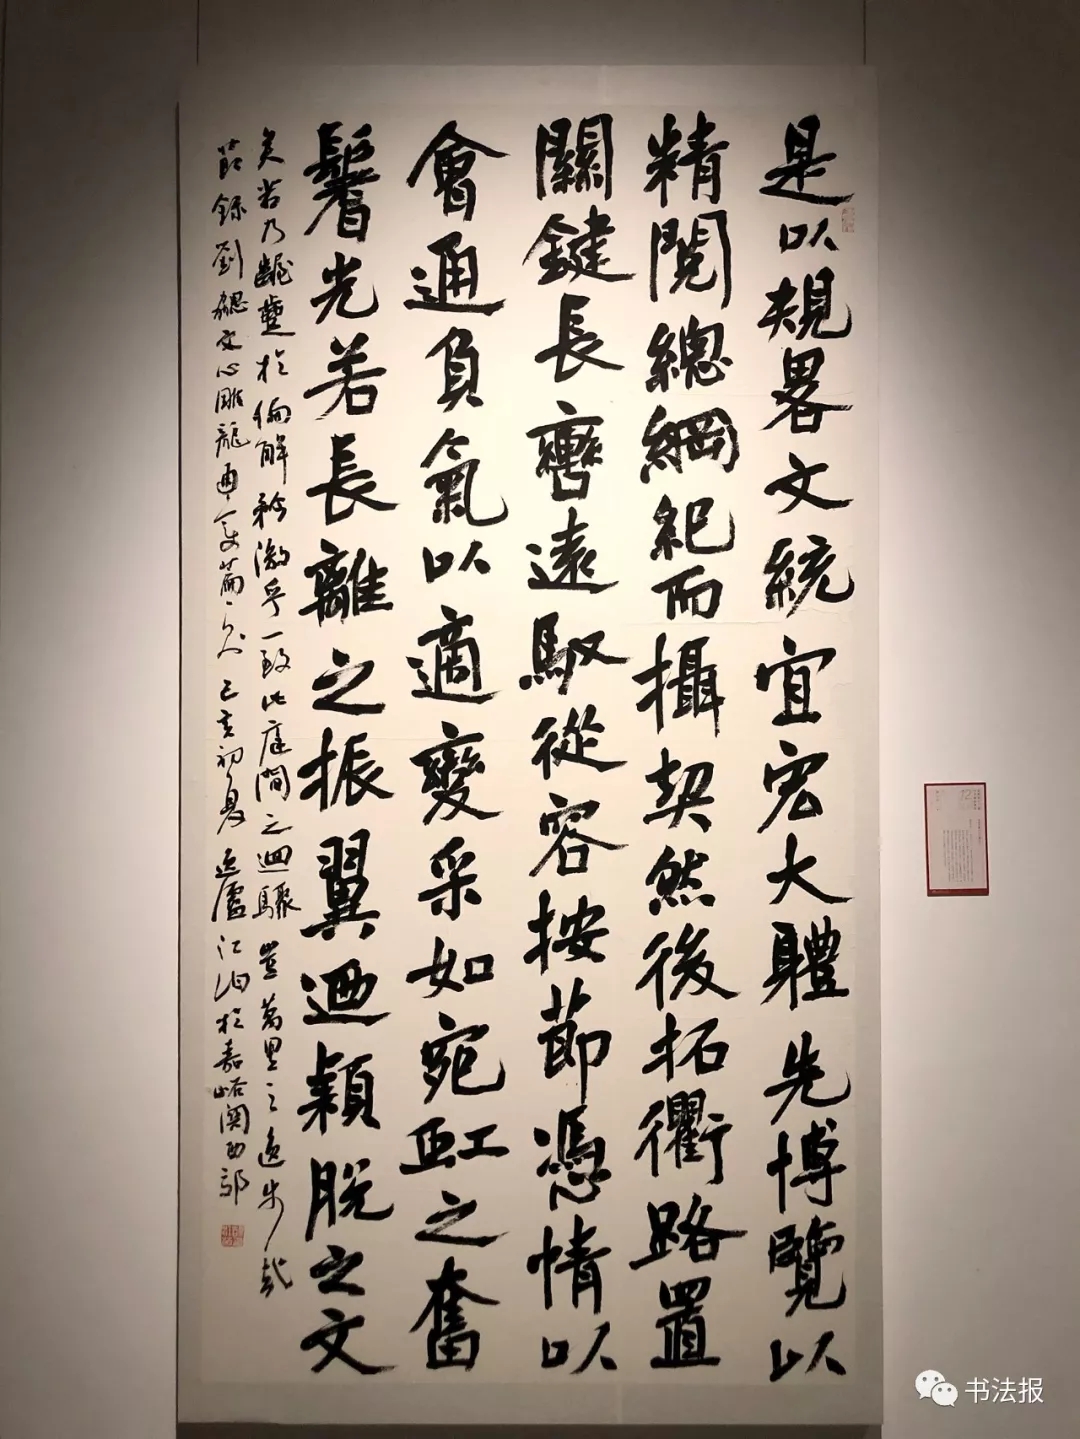 是以規畧文統宜宏大體先博覽以
精閲總綱紀而攝契然後拓衢路置
關鍵長轡遠馭從容按節憑情以
會通負氣以適變采如宛虹之奮
鬐光若長離之振翼迺穎脱之文
矣若乃齷齪於偏解矜激乎一致此庭間之迴驟豈萬里之逸步哉
節録劉勰文心雕龍通變篇句 己亥初夏 逸廬江泊於嘉峪關西部
书法报